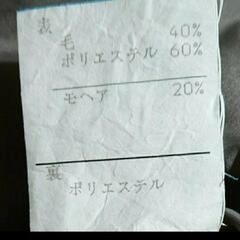 表
毛 40%
ポリエステル 60%
モヘア 20%
裏
ポリエステル